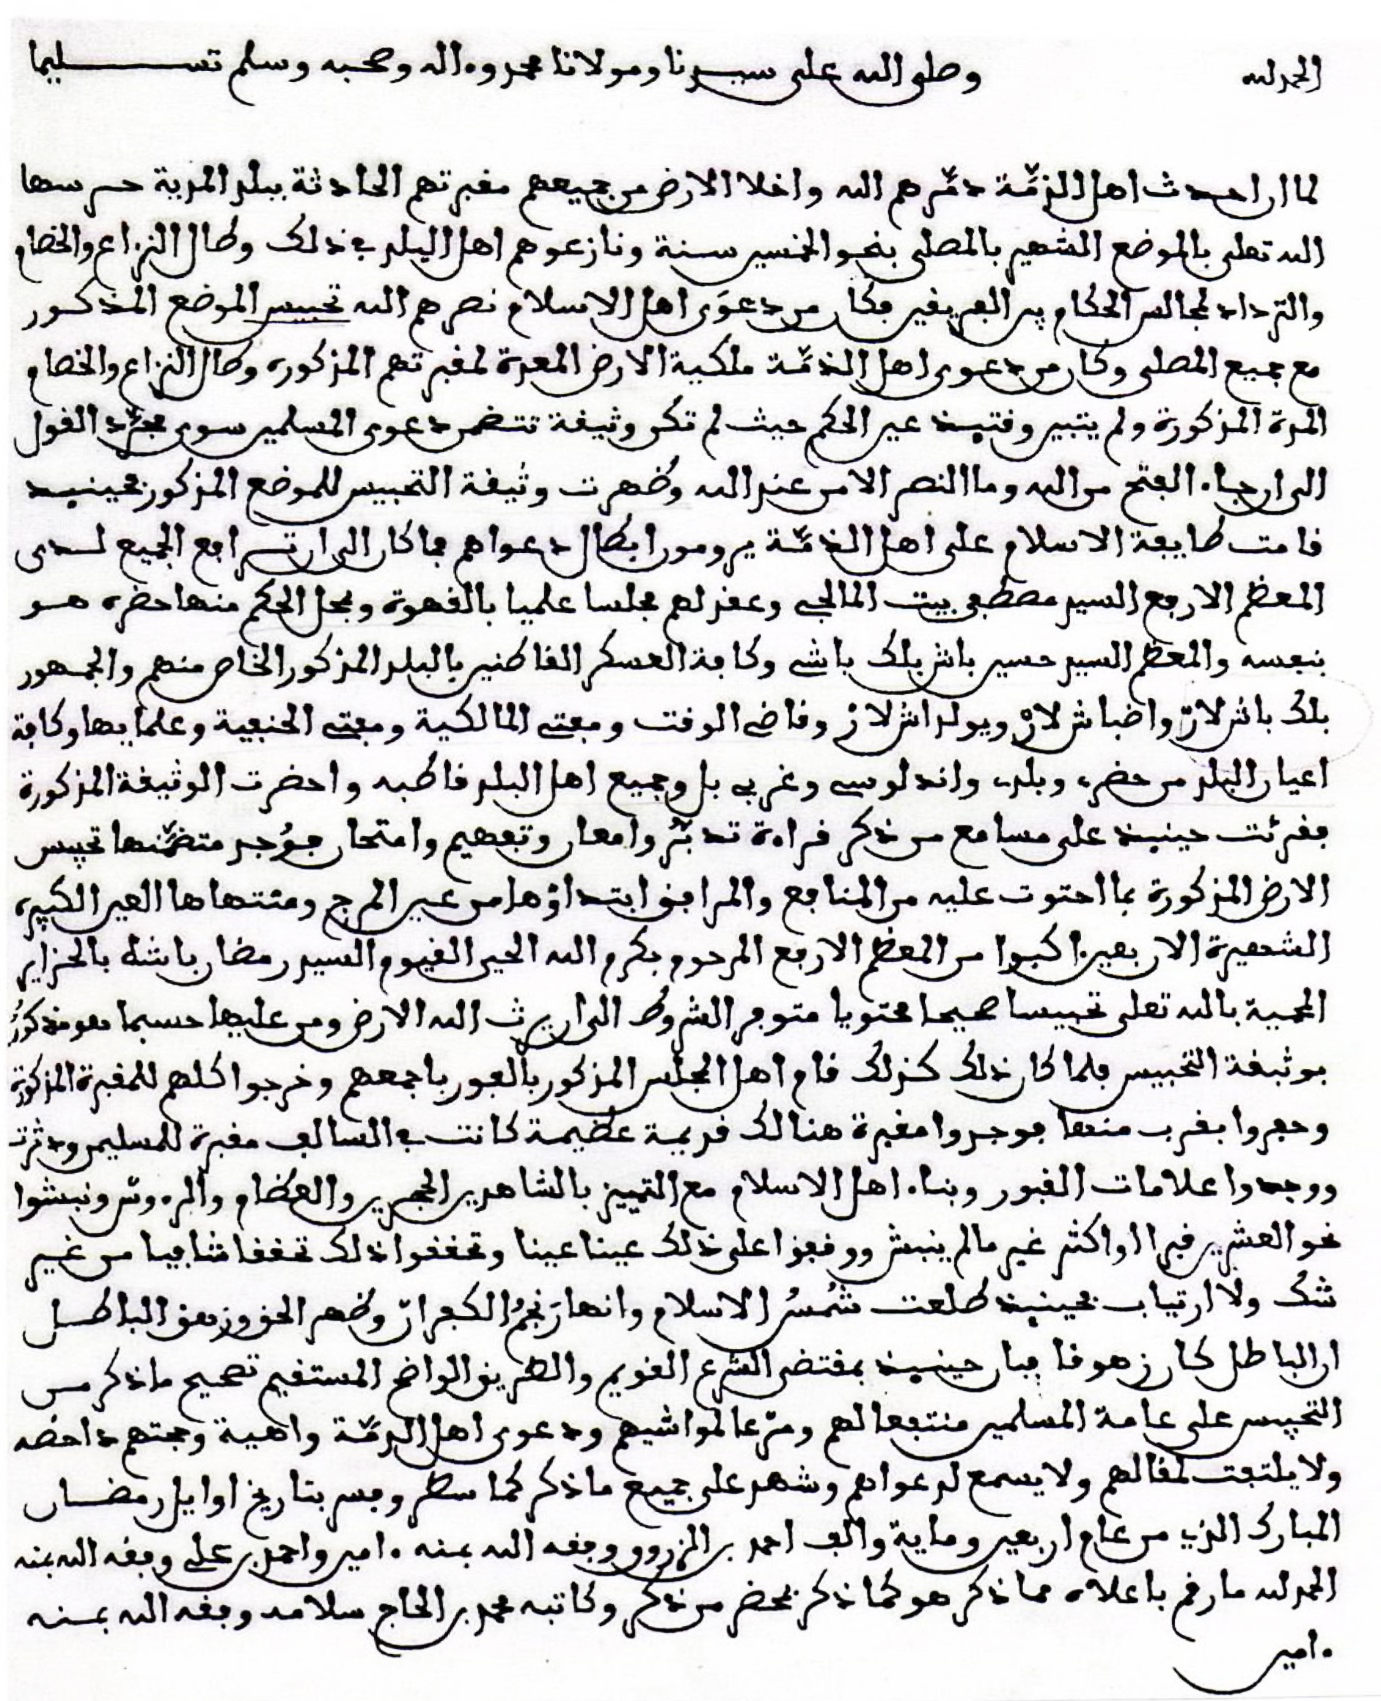 الحمد لله وصلى الله على سيدنا ومولانا محمد وءاله وصحبه وسلم تسليما
لما ان احدث اهل الذمّة دمّرهم الله واخلا الارض من جميعهم مقبرتهم الحادثة ببلد المدية حرسها
الله تعلى بالموضع الشهير بالمصلى بنحو الخمسين سنة ونازعوهم اهل البلد في ذلك وطال النزاع والخصام
والترداد لمجالس الحكام بين الفريقين فكان من دعوى اهل الاسلام نصرهم الله تحبيس الموضع المذكور
مع جميع المصلى وكان من دعوى اهل الذمّة ملكية الارض المعدة لمقبرتهم المذكوره وطال النزاع والخصام
المدة المذكورة ولم يتبين وقتيذ عين الحكم حيث لم تكن وثيقة تتضمن دعوى المسلمين سوى مجرّد القول
الى ان جاء الفتح من الله وما النصر الا من عند الله وظهرت وثيقة التحبيس للموضع المذكور فحينيذ
قامت طايفة الاسلام على اهل الذمّة يرومون ابطال دعواهم فما كان الى ان ترافع الجميع لدى
المعظم الارفع السيد مصطفى بيت المالجي وعقد لهم مجلسا علميا بالقهوة ومحل الحكم منها حضره هو
بنفسه والمعظم السيد حسين باش بلك باشي وكافة العسكر القاطنين بالبلد المذكور الخاص منهم والجمهور
بلك باش لارْ واضباش لارْ ويولداش لارْ وقاضي الوقت ومفتي المالكية ومفتي الحنفية وعلمايها وكافة
اعيان البلد من حضري وبلدي واندلوسي وغربي بل وجميع اهل البلد قاطبه واحضرت الوثيقة المذكورة
فقرئت حينيذ على مسامع من ذكر قراءة تدبّر وامعان وتفهيم وامتحان فوُجد متضمّنها تحبيس
الارض المذكورة بما احتوت عليه من المنافع والمرافق ابتداؤها من عين المرج ومنتهاها العين الكبيرة
الشهيرة الان بعين اكبوا من المعظم الارفع المرحوم بكرم الله الحي القيوم السيد رمضان باشا بالجزاير
المحمية بالله تعلى تحبيسا صحيحا محتويا متوفر الشروط الى ان يرث الله الارض ومن عليها حسبما هو مذكورٌ
بوثيقة التحبيس فلما كان ذلك كذلك قام اهل المجلس المذكور بالفور باجمعهم وخرجوا كلهم للمقبرة المذكورة
وحفروا بقرب منها فوجدوا مقبرة هنالك قديمة عظيمة كانت في السالف مقبرة للمسلمين ودثرت
ووجدوا علامات القبور وبناء اهل الاسلام مع التمييز بالشاهدين الحجرين والعظام والرءوس ونبشوا
نحو العشرين قبرا او اكثر غير ما لم ينبش ووقفوا على ذلك عينا عينا وتحققوا ذلك تحققا شافيا من غير
شك ولا ارتياب فحينيذ طلعت شمْسُ الاسلام وانهارَ نجمُ الكفران وظهر الحق وزهق الباطل
ان الباطل كان زهوقا فبان حينيذ بمقتضى الشرع القويم والطريق الواضح المستقيم تصحيح ما ذكر من
التحبيس على عامة المسلمين منتفعا لهم ومرْعا لمواشيهم ودعوى اهل الذمّة واهية وحجتهم داحضه
ولا يلتفت لمقالهم ولا يسمع لدعواهم وشهد على جميع ما ذكر كما سطر وفسر بتاريخ اوايل رمضان
المبارك الذي من عام اربعين وماية والف احمد بن المزروو وفقه الله بمنه ءامين واحمد بن علي وفقه الله بمنه
الحمد لله ما رقم باعلاه مما ذكر هو كما ذكر بمحضر من ذكر وكاتبه محمد بن الحاج سلامه وفقه الله بمنه
ءامين